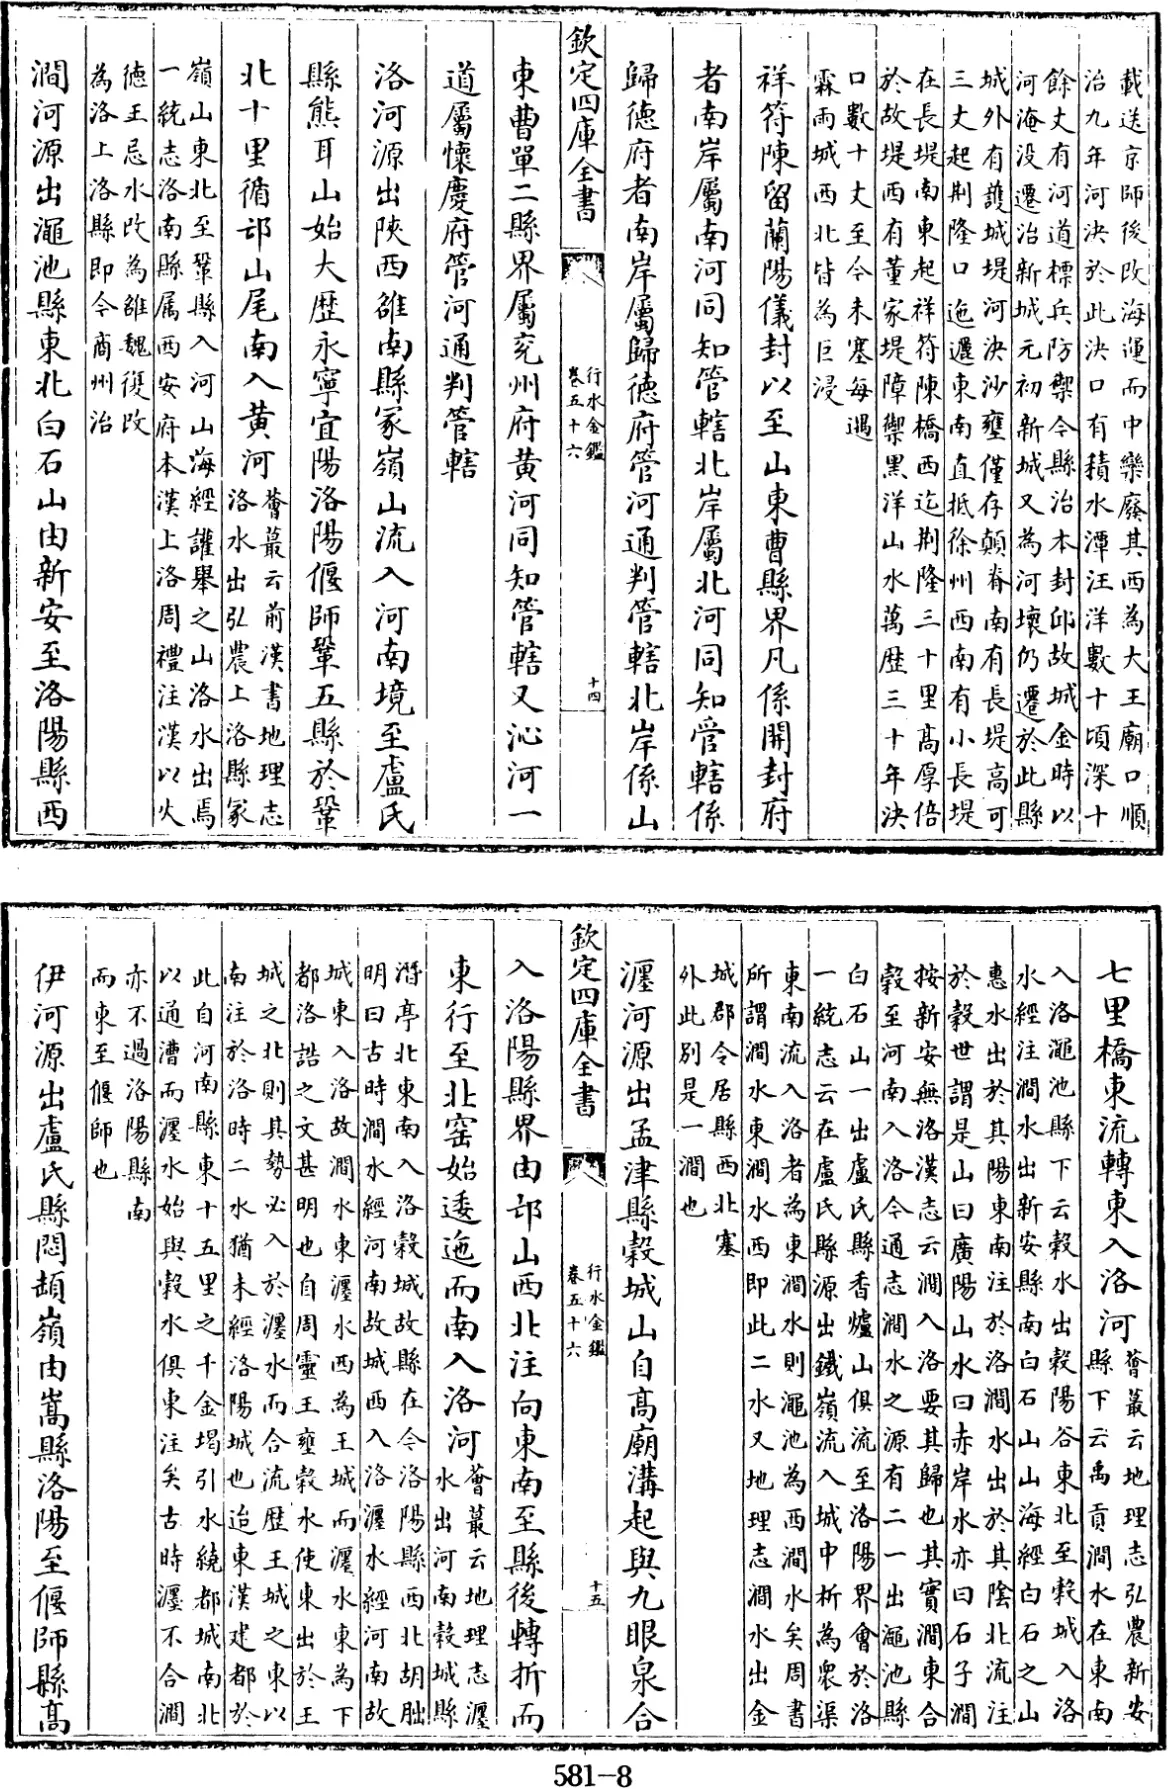 載送京師後改海運而中欒廢其西為大王廟口順
治九年河決於此決口有積水潭汪洋數十頃深十
餘丈有河道標兵防禦今縣治本封邱故城金時以
河淹没遷治新城元初新城又為河壞仍遷於此縣
城外有護城堤河決沙壅僅存顛脊南有長堤高可
三丈起荆隆口迤邐東南直抵徐州西南有小長堤
在長堤南東起祥符陳橋西迄荆隆三十里高厚倍
於故堤西有董家堤障禦黒洋山水萬歴三十年決
口數十丈至今未塞每遇
霖雨城西北皆為巨浸
祥符陳留蘭陽儀封以至山東曹縣界凡係開封府
者南岸屬南河同知管轄北岸屬北河同知管轄係
歸德府者南岸屬歸德府管河通判管轄北岸係山
欽定四庫全書
行水金鑑
卷五十六
十四
東曹單二縣界屬兖州府黄河同知管轄又沁河一
道屬懷慶府管河通判管轄
洛河源出陜西雒南縣冡嶺山流入河南境至盧氏
縣熊耳山始大歴永寧宜陽洛陽偃師鞏五縣於鞏
北十里循邙山尾南入黄河
薈蕞云前漢書地理志
洛水出弘農上洛縣冡
嶺山東北至鞏縣入河山海經讙舉之山洛水出焉
一統志洛南縣属西安府本漢上洛周禮注漢以火
徳王忌水改為雒魏復改
為洛上洛縣即今商州治
澗河源出澠池縣東北白石山由新安至洛陽縣西
七里橋東流轉東入洛河
薈蕞云地理志弘農新安
縣下云禹貢澗水在東南
入洛澠池縣下云穀水出穀陽谷東北至穀城入洛
水經注澗水出新安縣南白石山山海經白石之山
惠水出於其陽東南注於洛澗水出於其陰北流注
於穀世謂是山曰廣陽山水曰赤岸水亦曰石子澗
按新安無洛漢志云澗入洛要其歸也其實澗東合
穀至河南入洛今通志澗水之源有二一出澠池縣
白石山一出盧氏縣香爐山俱流至洛陽界會於洛
一統志云在盧氏縣源出鐵嶺流入城中析為衆渠
東南流入洛者為東澗水則澠池為西澗水矣周書
所謂澗水東澗水西即此二水又地理志澗水出金
城郡令居縣西北塞
外此别是一澗也
瀍河源出孟津縣穀城山自高廟溝起與九眼泉合
欽定四庫全書
行水金鑑
卷五十六
十五
入洛陽縣界由邙山西北注向東南至縣後轉折而
東行至北窑始逶迤而南入洛河
薈蕞云地理志瀍
水出河南穀城縣
潛亭北東南入洛穀城故縣在今洛陽縣西北胡朏
明曰古時澗水經河南故城西入洛瀍水經河南故
城東入洛故澗水東瀍水西為王城而瀍水東為下
都洛誥之文甚明也自周靈王壅穀水使東出於王
城之北則其勢必入於瀍水而合流歴王城之東以
南注於洛時二水猶未經洛陽城也迨東漢建都於
此自河南縣東十五里之千金堨引水繞都城南北
以通漕而瀍水始與穀水俱東注矣古時瀍不合澗
亦不過洛陽縣南
而東至偃師也
伊河源出盧氏縣悶頓嶺由嵩縣洛陽至偃師縣高
581-8